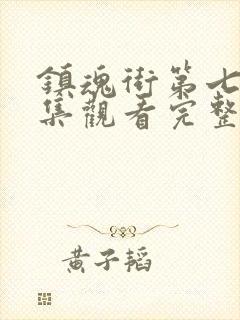 鎮魂街第七
集觀看完整
黃子韜